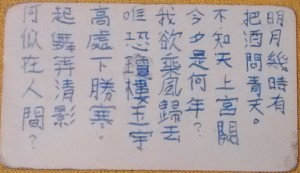 明月幾時有
把酒問青天。
不知天上宮闕
今夕是何年?
我欲乘風歸去
唯恐瓊樓玉宇
高處下勝寒。
起舞弄清影
何似在人間?